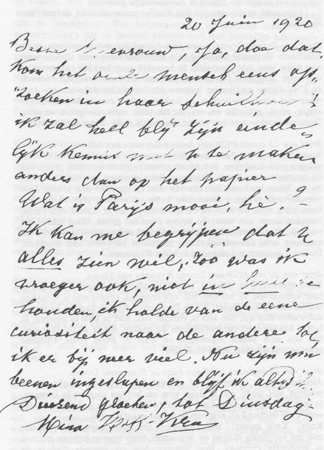 20 Juin 1920
Beste Mevrouw, Ja, doe dat,
Kom het oude mensch eens op-
zoeken in haar schuilhoek
ik zal heel blij zijn einde-
lijk kennis met U te maken
anders dan op het papier
Wat is Parijs mooi, hè?
Ik kan me begrijpen dat U
alles zien wil, zóó was ik
vroeger ook, niet in te
houden, ik holde van de eene
curiositeit naar de andere tot
ik er bij neer viel. Nu zijn mijn
beenen ingeslapen en blijf ik altijd
Duizend groeten, tot Dinsdag